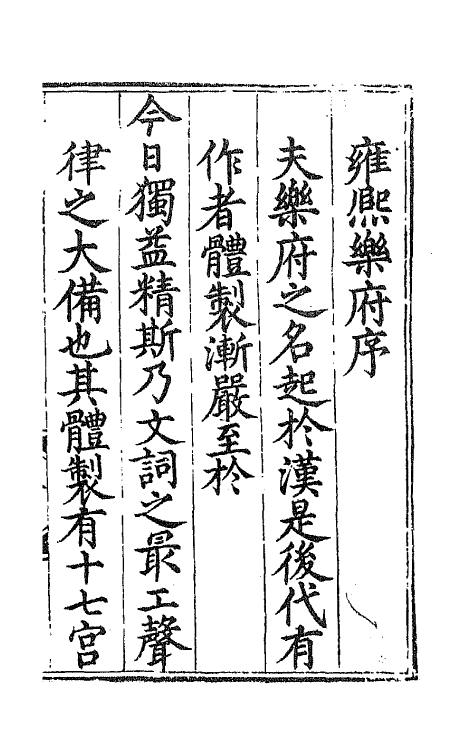 雍熙樂府序
夫樂府之名起於漢是後代有
作者體製漸嚴至於
今日獨益精斯乃文詞之最工聲
律之大備也其體製有十七宮